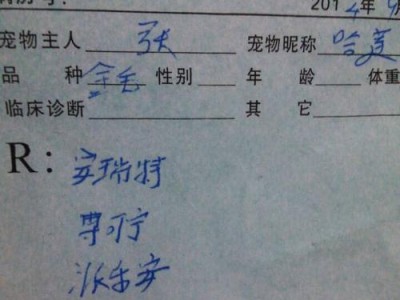 2014年
宠物主人 张 宠物昵称 哈美
品 种 金毛 性别 年 龄 体重
临床诊断 其 它
R: 安瑞特
尊可宁
派乐安